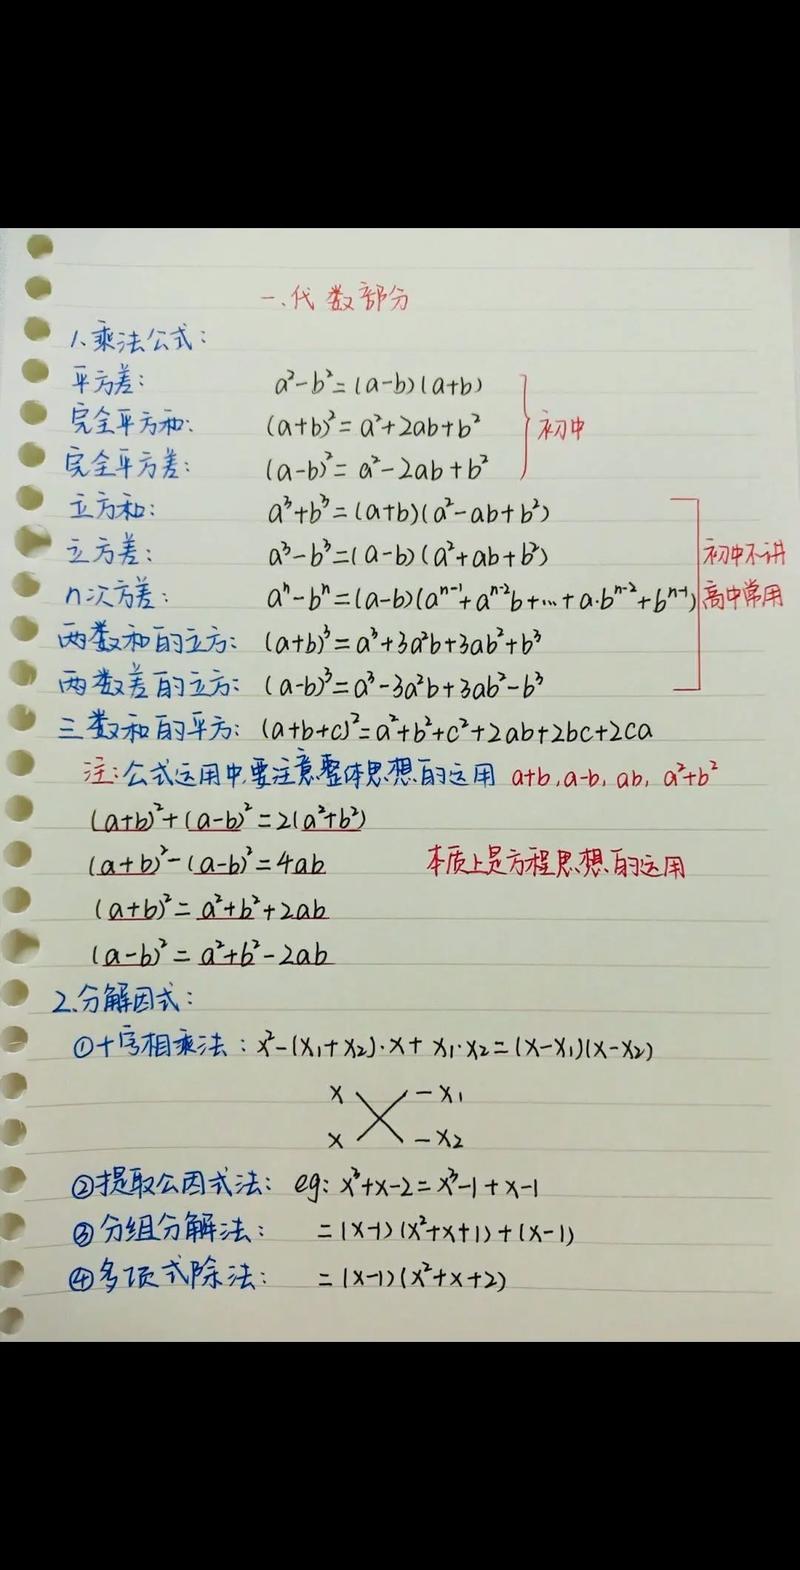 一、代数部分
1、乘法公式：
平方差： a²-b²=(a-b)(a+b)
完全平方和： (a+b)²=a²+2ab+b² 初中
完全平方差： (a-b)²=a²-2ab+b²
立方和： a³+b³=(a+b)(a²-ab+b²)
立方差： a³-b³=(a-b)(a²+ab+b²) 初中不讲
n次方差： aⁿ-bⁿ=(a-b)(aⁿ⁻¹+aⁿ⁻²b+…+a·bⁿ⁻²+bⁿ⁻¹) 高中常用
两数和的立方： (a+b)³=a³+3a²b+3ab²+b³
两数差的立方： (a-b)³=a³-3a²b+3ab²-b³
三数和的平方： (a+b+c)²=a²+b²+c²+2ab+2bc+2ca
注：公式运用中，要注意整体思想的运用 a+b, a-b, ab, a²+b²
(a+b)²+(a-b)²=2(a²+b²)
(a+b)²-(a-b)²=4ab 本质上是方程思想的运用
(a+b)²=a²+b²+2ab
(a-b)²=a²+b²-2ab
2、分解因式：
①十字相乘法：x²-(x₁+x₂)·x+x₁·x₂=(x-x₁)(x-x₂)
x -x₁
x -x₂
②提取公因式法： eg: x³+x-2=x³-1+x-1
③分组分解法： =(x-1)(x²+x+1)+(x-1)
④多项式除法： =(x-1)(x²+x+2)